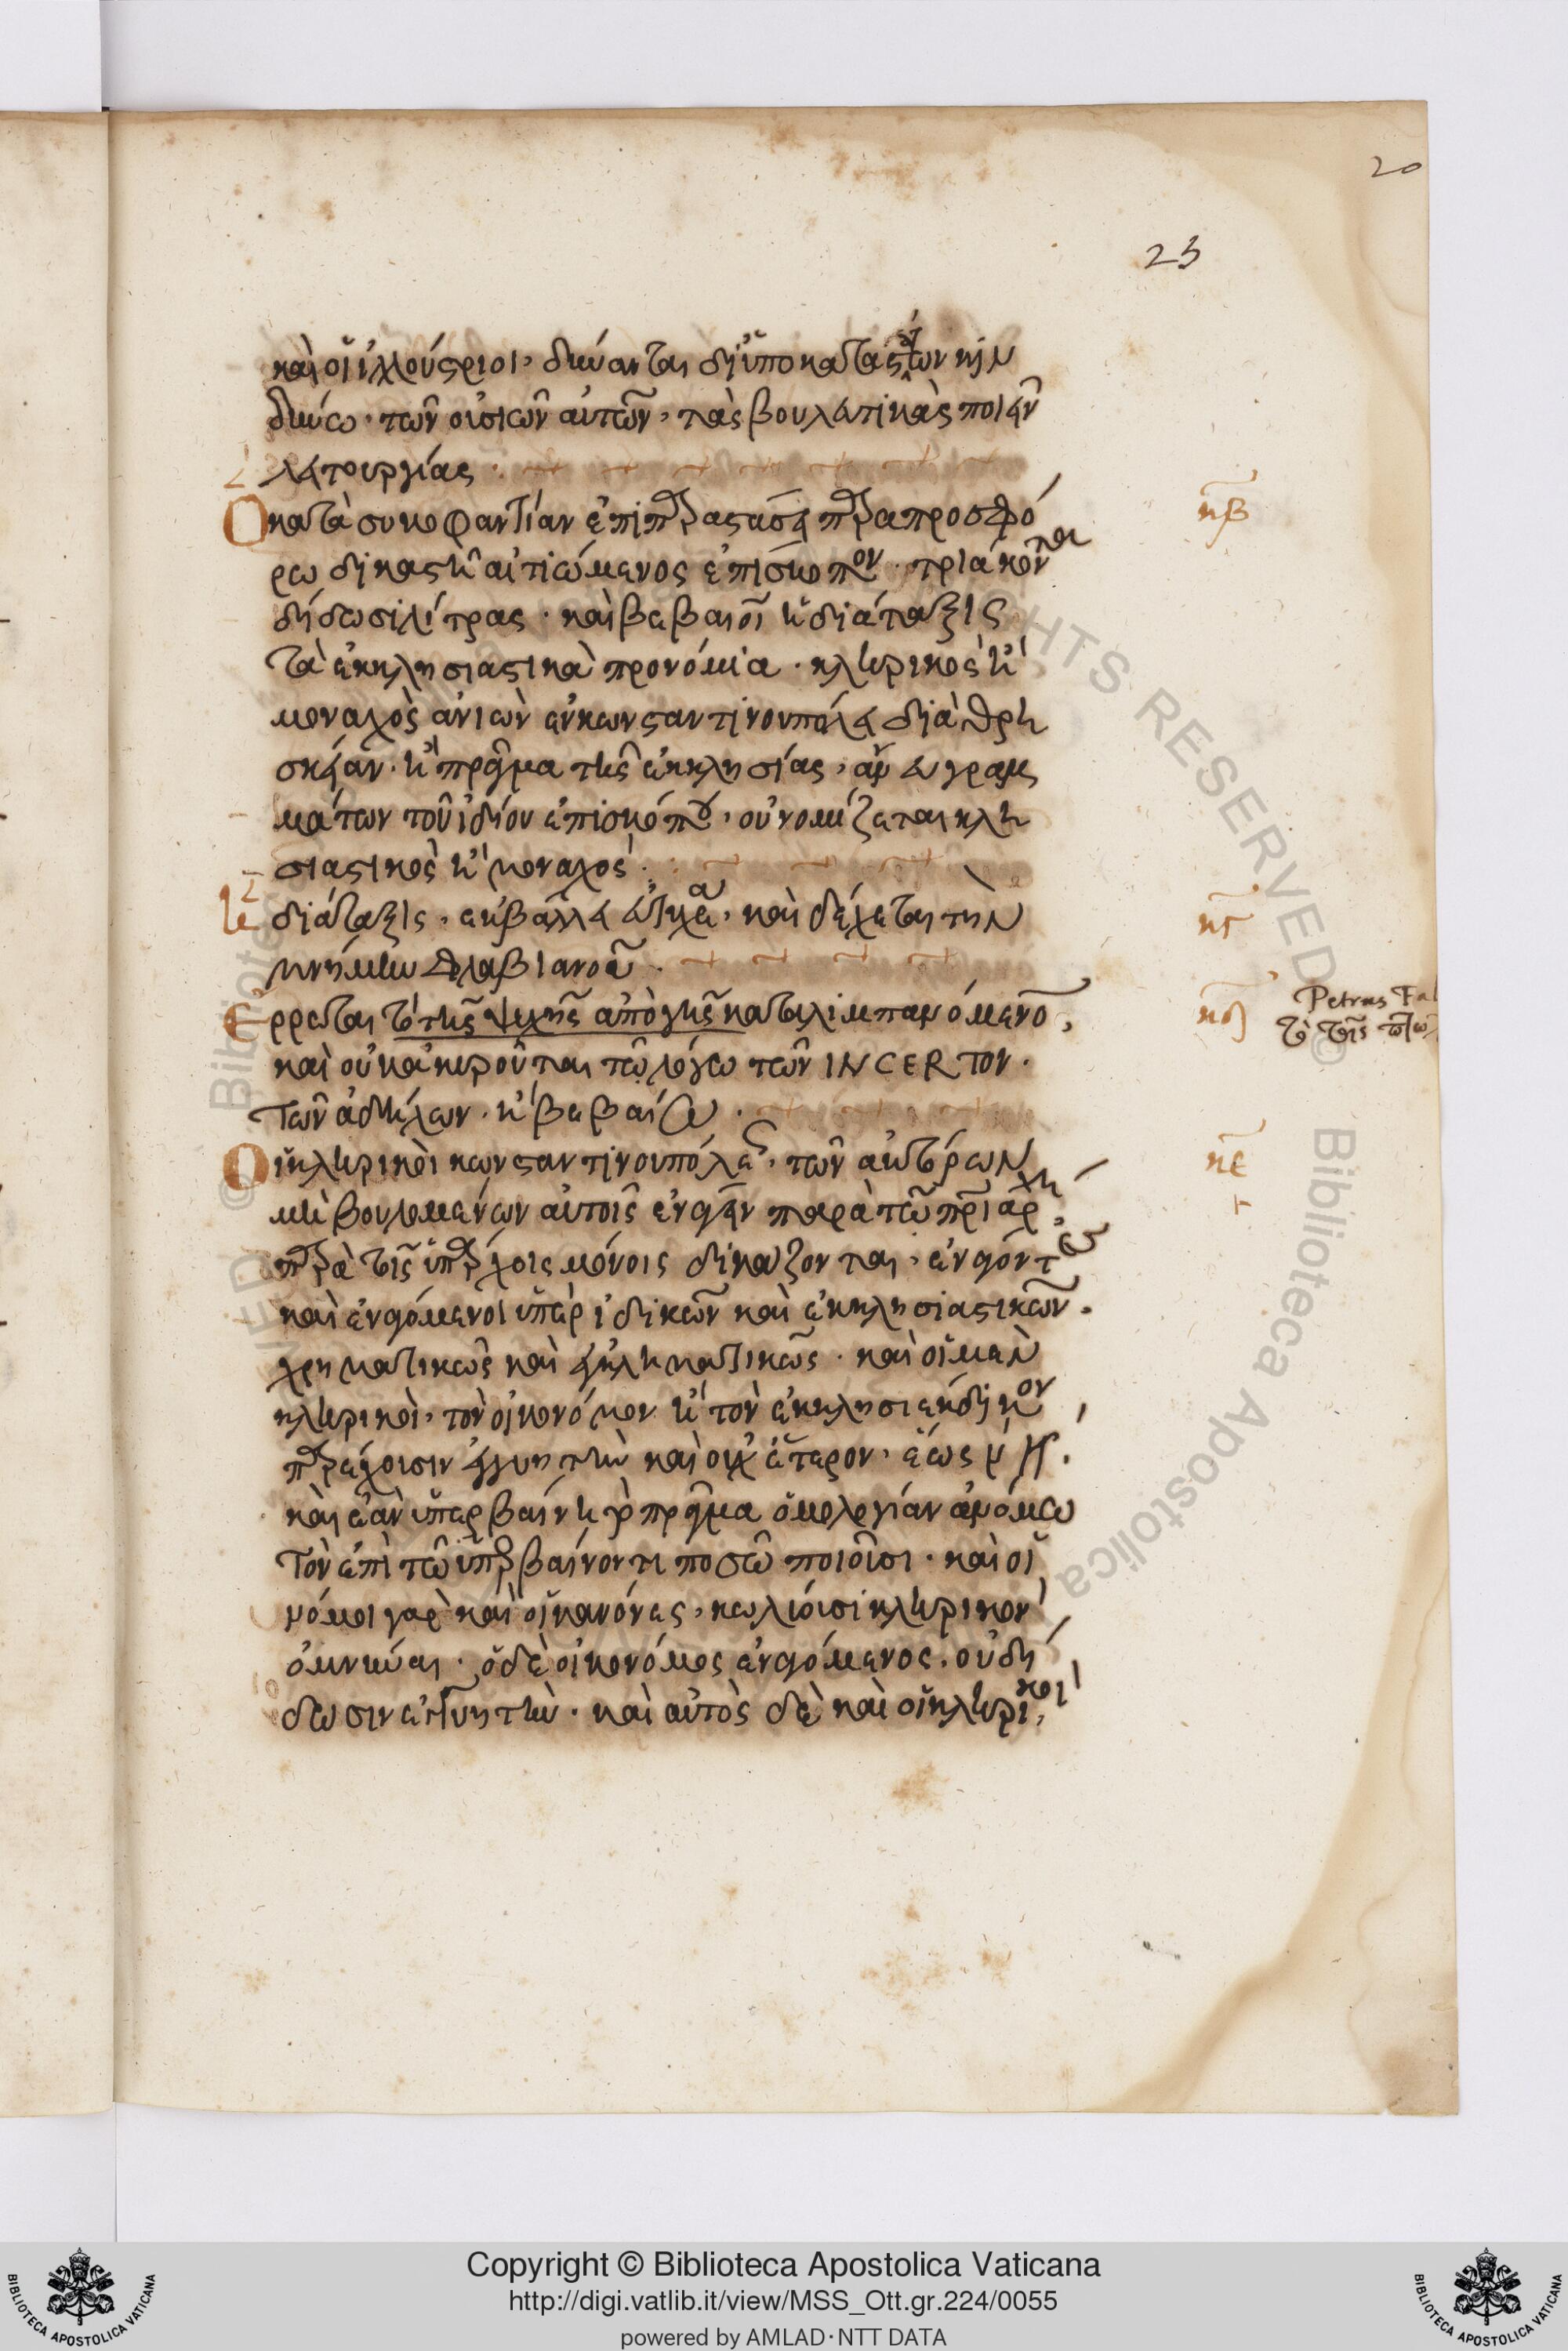 20
23
καὶ οἱ ἰλλούστριοι, δύνανται δι' ὑποκαταστάτων κιν
δύνω· τῶν οὐσιῶν αὐτῶν, τὰς βουλευτικὰς ποιεῖν
λειτουργίας ·
Ο κατὰ συκοφαντίαν ἐπὶ πράσασει παραπροσφό κβ
ρω δικαστῆ αἰτιώμενος ἐπίσκοπον· τριάκοντα
δίδωσι λίτρας · καὶ βεβαιοῖ ἡ διάταξις
τὰ ἐκκλησιαστικὰ προνόμια · κληρικὸς ἢ
μοναχὸς ἀνιὼν ἐν κωνσταντινουπόλει διὰ θρη
σκείαν· ἢ πρᾶγμα τῆς ἐκκλησίας, ἄνευ γραμ
μάτων τοῦ ἰδίου ἐπισκόπου, οὐ νομίζεται κλη
σιαστικὸς ἢ μοναχὸς ·
Η διάταξις, ἐκβάλλει εὐτυχέα, καὶ δέχεται τὴν κγ
μνήμην φλαβιανοῦ ·
Ερρωται τὸ τῆς ψυχῆς ἀπὸ γῆς καταλιμπανόμενον, κδ Petrus Fa
καὶ οὐκ ἀκυροῦται τῷ λόγῳ τῶν INCERTON·
τῶν ἀδήλων· ἢ βεβαίω ·
Οἱ κληρικοὶ κωνσταντινουπόλεως, τῶν ἀκτόρων κε
μὴ βουλομένων αὐτοῖς ἐνάγειν παρὰ τῷ πατριάρχῃ,
παρὰ τοῖς ὑπάρχοις μόνοις δικάζονται, ἐνάγοντες
καὶ ἐναγόμενοι ὑπὲρ ἰδικῶν καὶ ἐκκλησιαστικῶν·
χρηματικῶς καὶ ἐγκληματικῶς · καὶ οἱ μὲν
κληρικοὶ, τὸν οἰκονόμον ἢ τὸν ἐκκλησιεκδικον
παρέχουσιν ἐγγυητὴν καὶ οὐχ ἕτερον, ἕως ν
καὶ ἐὰν ὑπερβαίνη τὸ πρᾶγμα ὁμολογίαν ἀνόμω
τον ἐπὶ τῷ ὑπερβαίνοντι ποσῷ ποιοῦσι · καὶ οἱ
νόμοι γὰρ καὶ οἱ κανόνες, κωλύουσι κληρικὸν
ὀμνύναι · ὁ δὲ οἰκονόμος ἐναγόμενος, οὐ δί
δωσιν ἐγγυητὴν · καὶ αὐτὸς δὲ καὶ οἱ κληρικοὶ,
Copyright © Biblioteca Apostolica Vaticana
http://digi.vatlib.it/view/MSS_Ott.gr.224/0055
powered by AMLAD·NTT DATA
BIBLIOTECA APOSTOLICA VATICANA
BIBLIOTECA APOSTOLICA VATICANA